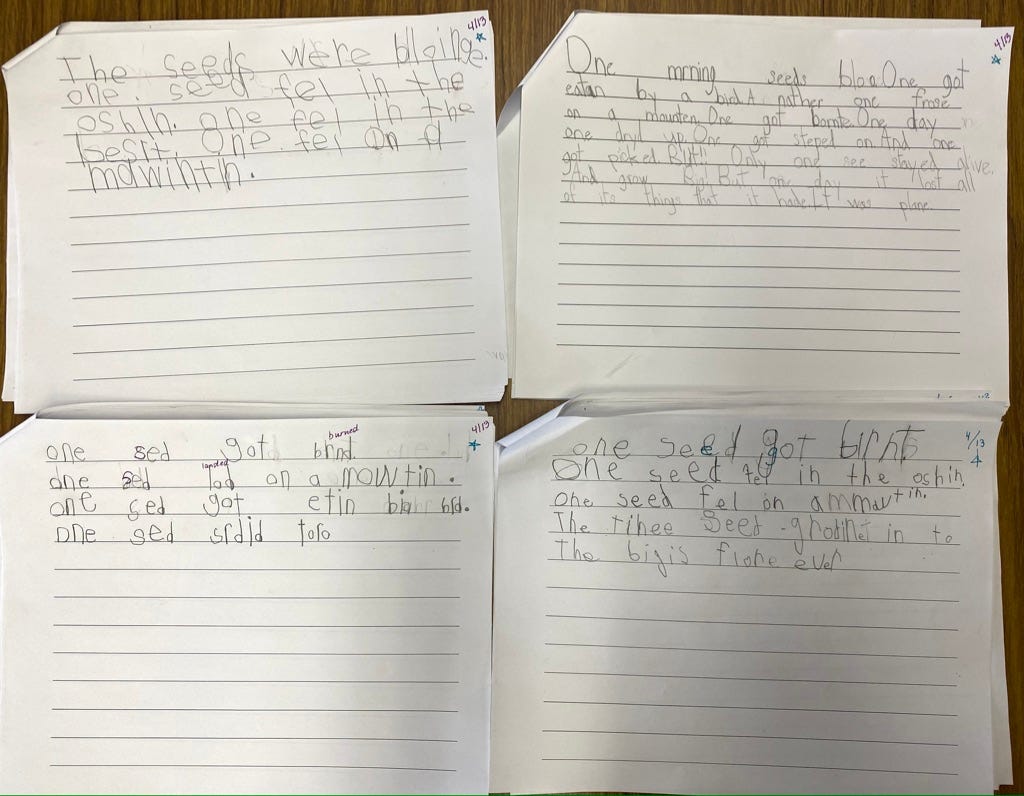 4/13
The seeds were bloing.
one. seed fel in the
oshin. one fel in the
besit. One. fel on a
mawintin.
4/13
One mrning seeds bloo. One got
eatan by a bird. A nather one frose
on a mounten. One got bornte. One day
one dryd up. One got steped on. And one
got picked. But!! Only one see stayed alive.
And grow Big! But one day it lost all
of its things that it hade. IT was plane.
4/13
burned
one sed got brnd.
landed
one sed lad on a mowtin.
one sed got etin bia brd.
one sed
4/13
one seed got birnt
One seed fel in the oshin.
one seed fel on
The tinee seed in to
the bigis flore ever